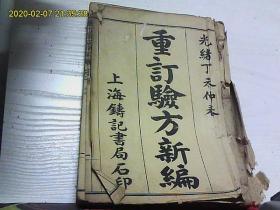 2020-02-07
光緒丁未仲冬
重訂驗方新編
上海鑄記書局石印